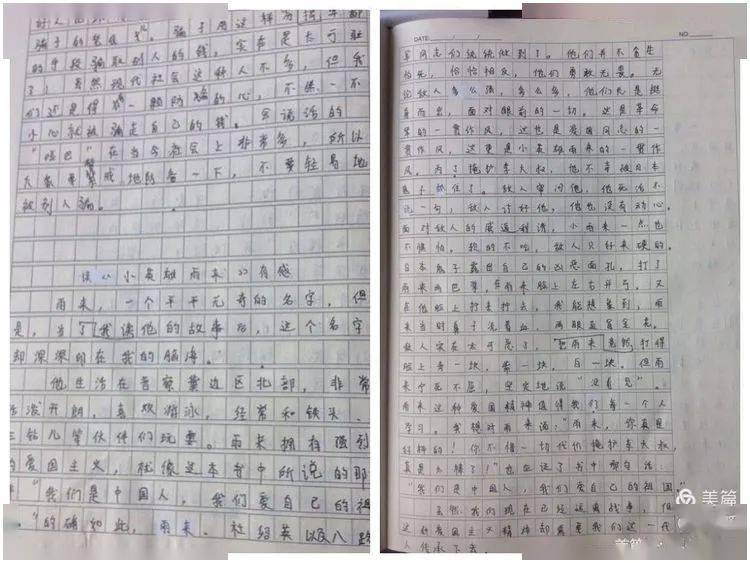 骗子的
的手段骗取别人的钱，实在是太可耻
了！虽然现代社会这种人不多，但我
们还是得有一颗防骗的心，不然一不
小心就被骗走自己的钱。会说话的
“哑巴”在当今社会上非常多，所以
大家要警戒地防备一下，不要轻易地
被别人骗。
读《小英雄雨来》有感
雨来，一个平平无奇的名字，但
是，当了我读他的故事后，这个名字
却深深印在我的脑海。
他生活在晋察冀边区北部，非常
活泼开朗，喜欢游泳，经常和铁头、
三钻儿等伙伴们玩耍。雨来拥有强烈
的爱国主义，就像这本书中所说的那
“我们是中国人，我们爱自己的祖
”的确如此，雨来、杜绍英以及八路
DATE: NO
军同志们统统做到了。他们并不贪生
怕死，恰恰相反，他们勇敢无畏。无
论敌人多么强，多么多，他们先是挺
身而出，面对眼前的一切。这是革命
军的一贯作风，这也是爱国同志的一
贯作风，这更是小英雄雨来的一贯作
风。为了掩护李大叔，他不幸被日本
鬼子抓住了。敌人审问他，他死活不
说一句，敌人讨好他，他也没有动心。
面对敌人的威逼利诱，小雨来一点也
不惧怕。软的不吃，敌人只好来硬的。
日本鬼子露出自己的凶恶面孔，打了
雨来两巴掌，在雨来脸上左右开弓，又
在他脸上打来打去，我能想象到，雨
来当时鼻子流着血，两眼直冒金花。
敌人实在太可恶了，把雨来竟然打得
脸上青一块，紫一块，白一块。但雨
来宁死不屈，坚定地说“没看见”。
雨来这种爱国精神值得我们每一个人
学习。我想对雨来说：“雨来，你真是
好样的！你不惜一切代价掩护李大叔，
真是太棒了！”也应证了书中那句话：
“我们是中国人，我们爱自己的祖国”
虽然，我们现在已经远离战争，但
这种爱国主义精神却需要我们这一代
人传承下去。
美篇
美篇